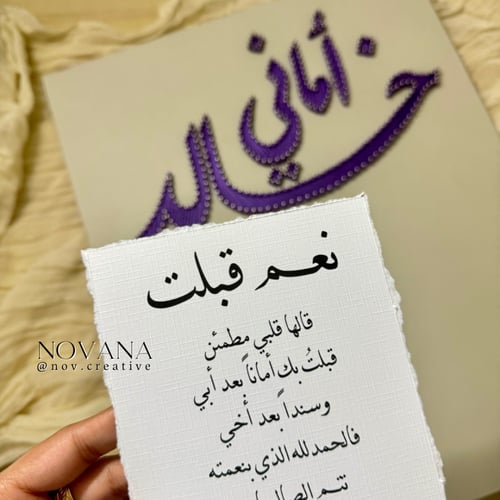 أماني
خالد
نعم قبلت
قالها قلبي مطمئن
قبلتُ بك أماناً بعد أبي
وسنداً بعد أخي
فالحمد لله الذي بنعمته
تتم
NOVANA
@nov.creative